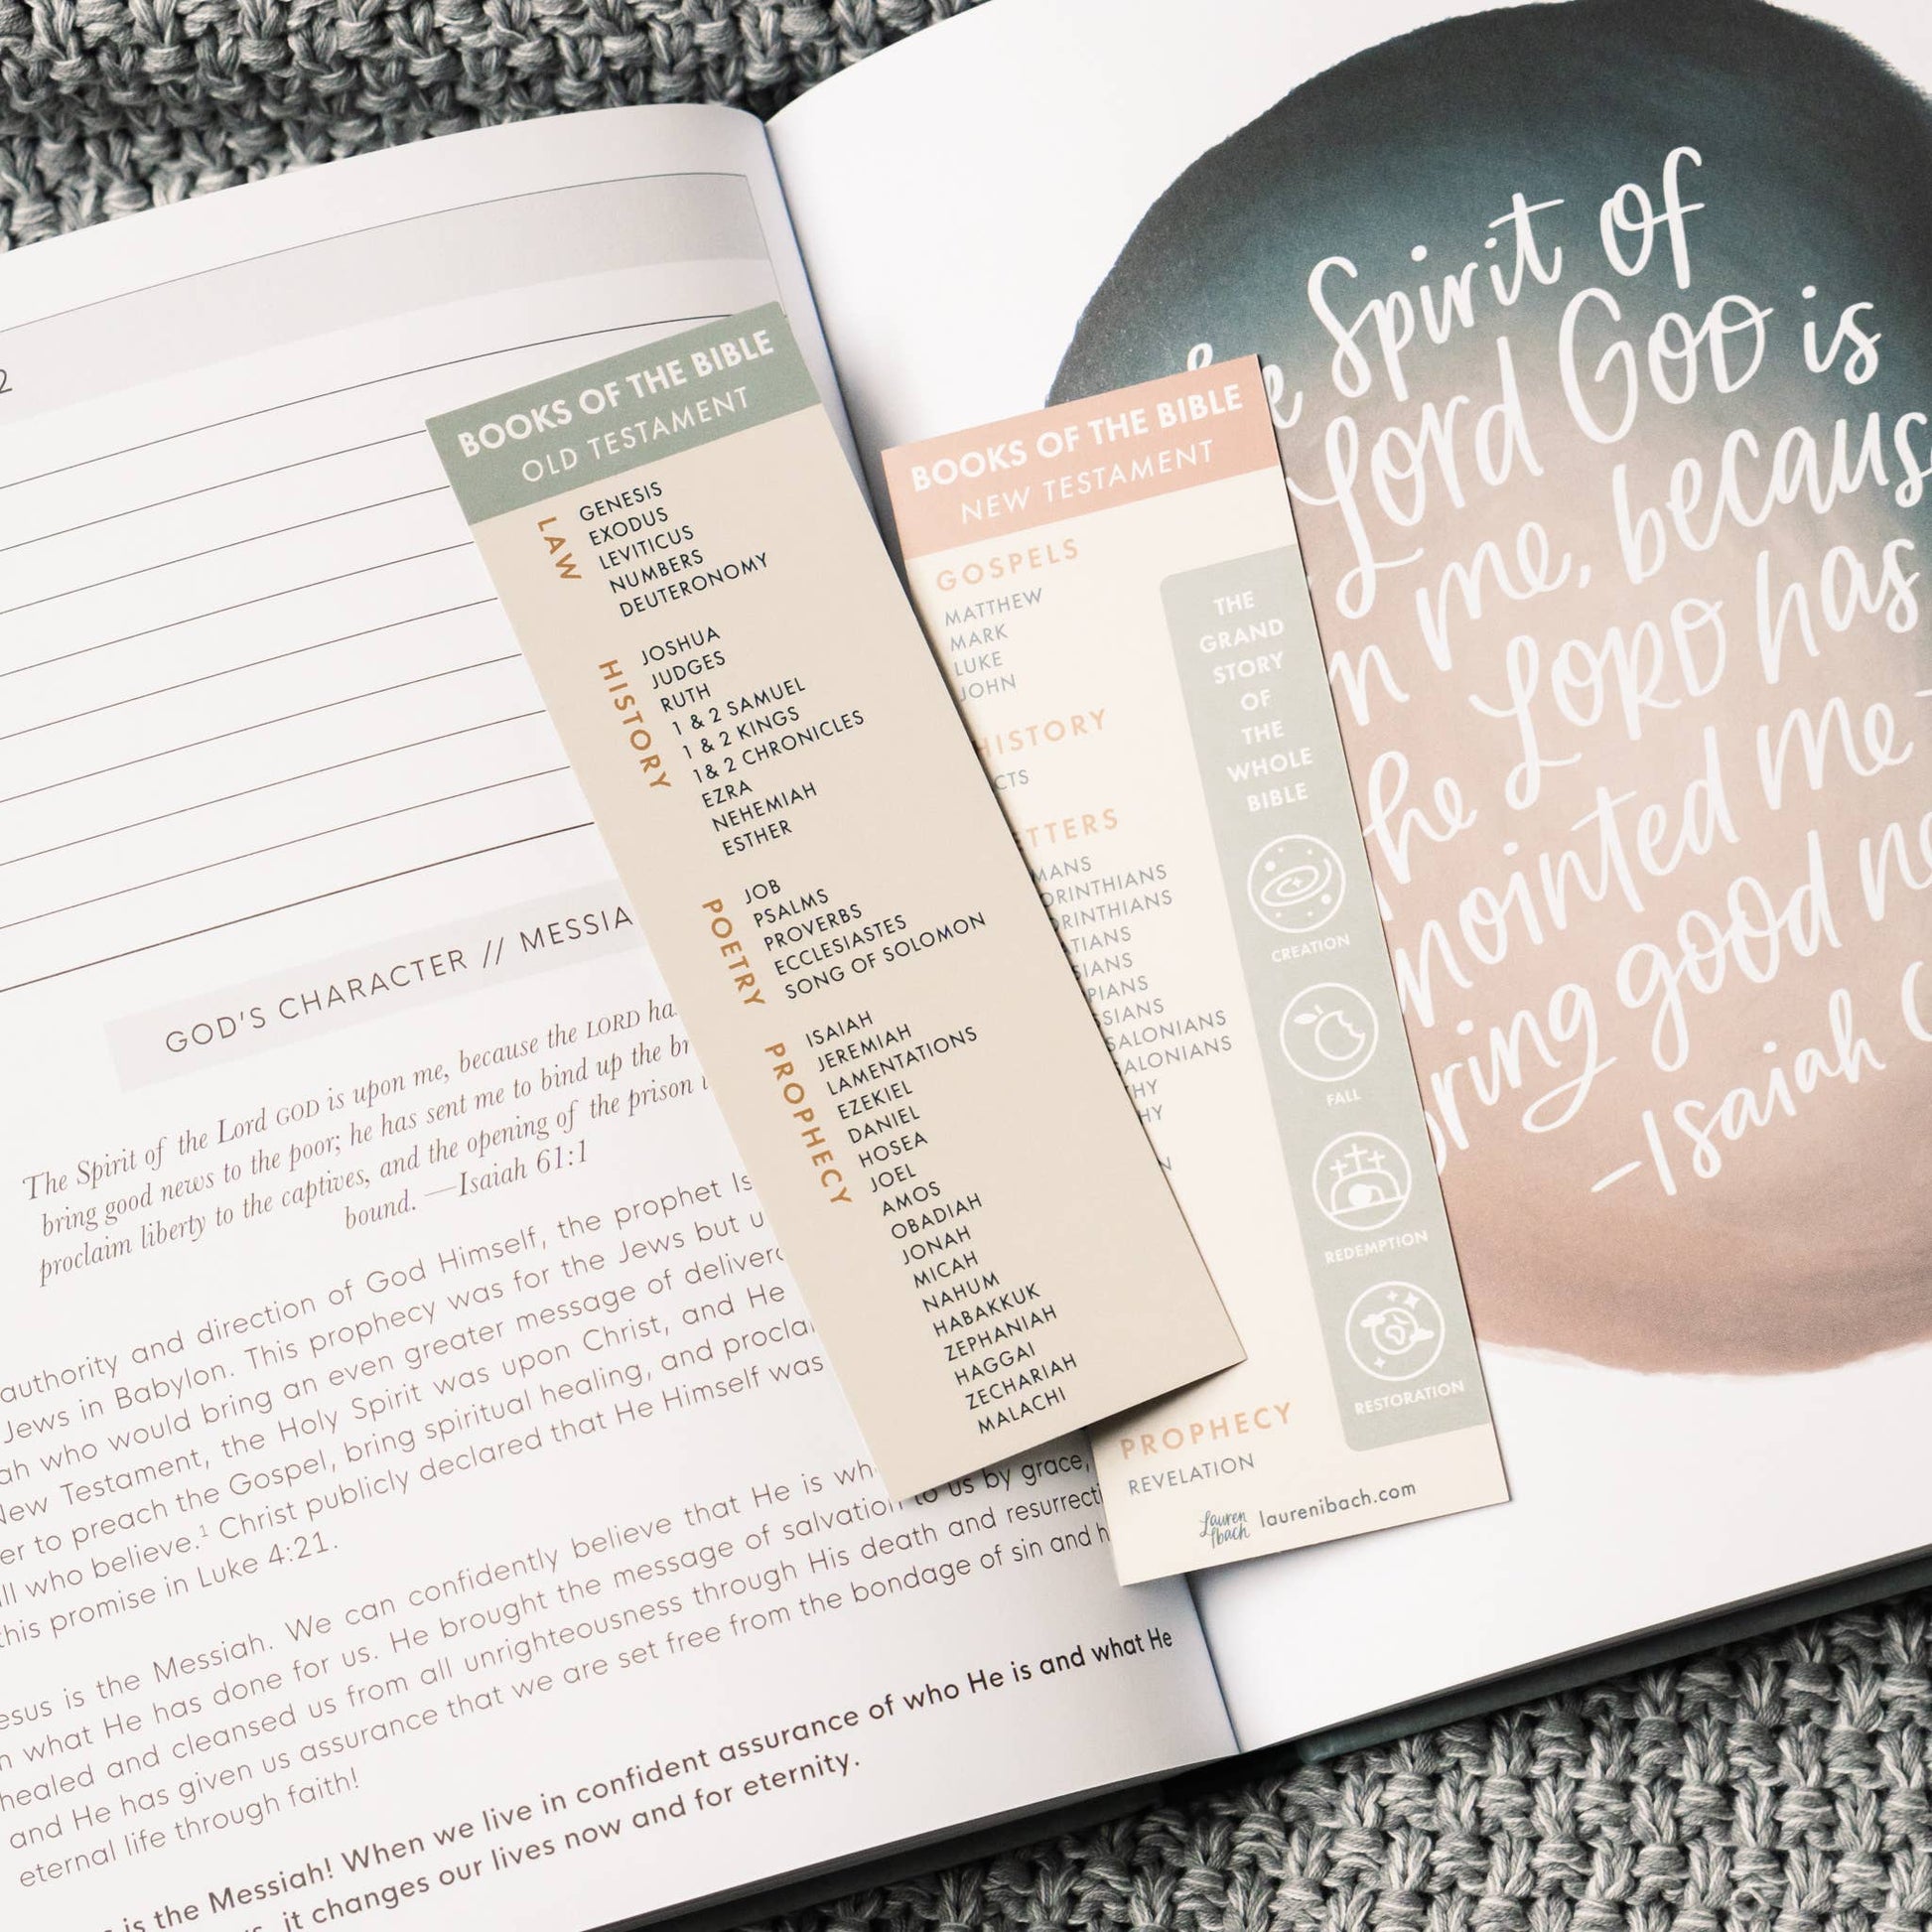 2
GOD'S CHARACTER // MESSIA
The Spirit of the Lord GOD is upon me, because the LORD ha
bring good news to the poor; he has sent me to bind up the br
proclaim liberty to the captives, and the opening of the prison
bound. —Isaiah 61:1
authority and direction of God Himself, the prophet Is
Jews in Babylon. This prophecy was for the Jews but u
ah who would bring an even greater message of deliver
New Testament, the Holy Spirit was upon Christ, and He
er to preach the Gospel, bring spiritual healing, and procla
ll who believe.¹ Christ publicly declared that He Himself was
this promise in Luke 4:21.
esus is the Messiah. We can confidently believe that He is wh
n what He has done for us. He brought the message of salvation to us by grace,
healed and cleansed us from all unrighteousness through His death and resurrecti
and He has given us assurance that we are set free from the bondage of sin and h
eternal life through faith!
is the Messiah! When we live in confident assurance of who He is and what He
it changes our lives now and for eternity.
BOOKS OF THE BIBLE
OLD TESTAMENT
LAW
GENESIS
EXODUS
LEVITICUS
NUMBERS
DEUTERONOMY
HISTORY
JOSHUA
JUDGES
RUTH
1 & 2 SAMUEL
1 & 2 KINGS
1& 2 CHRONICLES
EZRA
NEHEMIAH
ESTHER
POETRY
JOB
PSALMS
PROVERBS
ECCLESIASTES
SONG OF SOLOMON
PROPHECY
ISAIAH
JEREMIAH
LAMENTATIONS
EZEKIEL
DANIEL
HOSEA
JOEL
AMOS
OBADIAH
JONAH
MICAH
NAHUM
HABAKKUK
ZEPHANIAH
HAGGAI
ZECHARIAH
MALACHI
BOOKS OF THE BIBLE
NEW TESTAMENT
GOSPELS
MATTHEW
MARK
LUKE
JOHN
HISTORY
CTS
TTERS
MANS
ORINTHIANS
ORINTHIANS
TIANS
SIANS
PIANS
SSIANS
SALONIANS
ALONIANS
HY
HY
N
PROPHECY
REVELATION
THE
GRAND
STORY
OF
THE
WHOLE
BIBLE
CREATION
FALL
REDEMPTION
RESTORATION
Lauren
Ibach
laurenibach.com
he Spirit of
Lord GOD is
n me, because
he LORD has
nointed me
bring good ne
—Isaiah